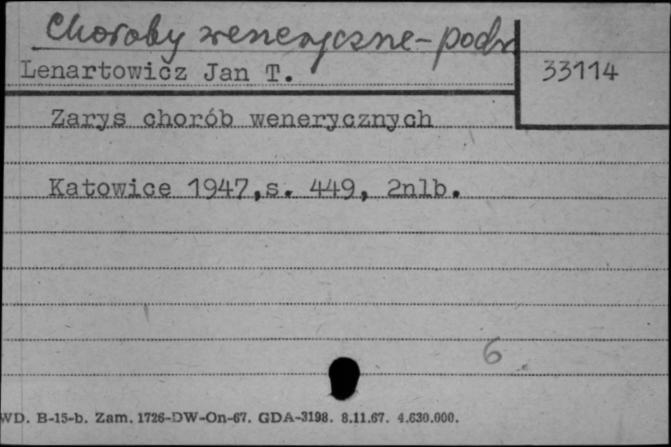 Choroby weneryczne-podr
Lenartowicz Jan T. 33114
Zarys chorób wenerycznych
Katowice 1947,s. 449, 2nlb.
6
WD. B-15-b. Zam. 1726-DW-On-67. GDA-3198. 8.11.67. 4.630.000.